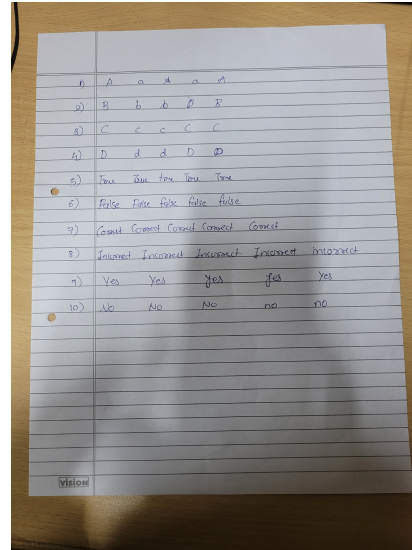 1) A a A a A
2) B b b B B
3) C c c C C
4) D d d D D
5) True True true True True
6) False False false false false
7) Correct Correct Correct Correct Correct
8) Incorrect Incorrect Incorrect Incorrect incorrect
9) Yes Yes Yes Yes Yes
10) No No No no no
VISION